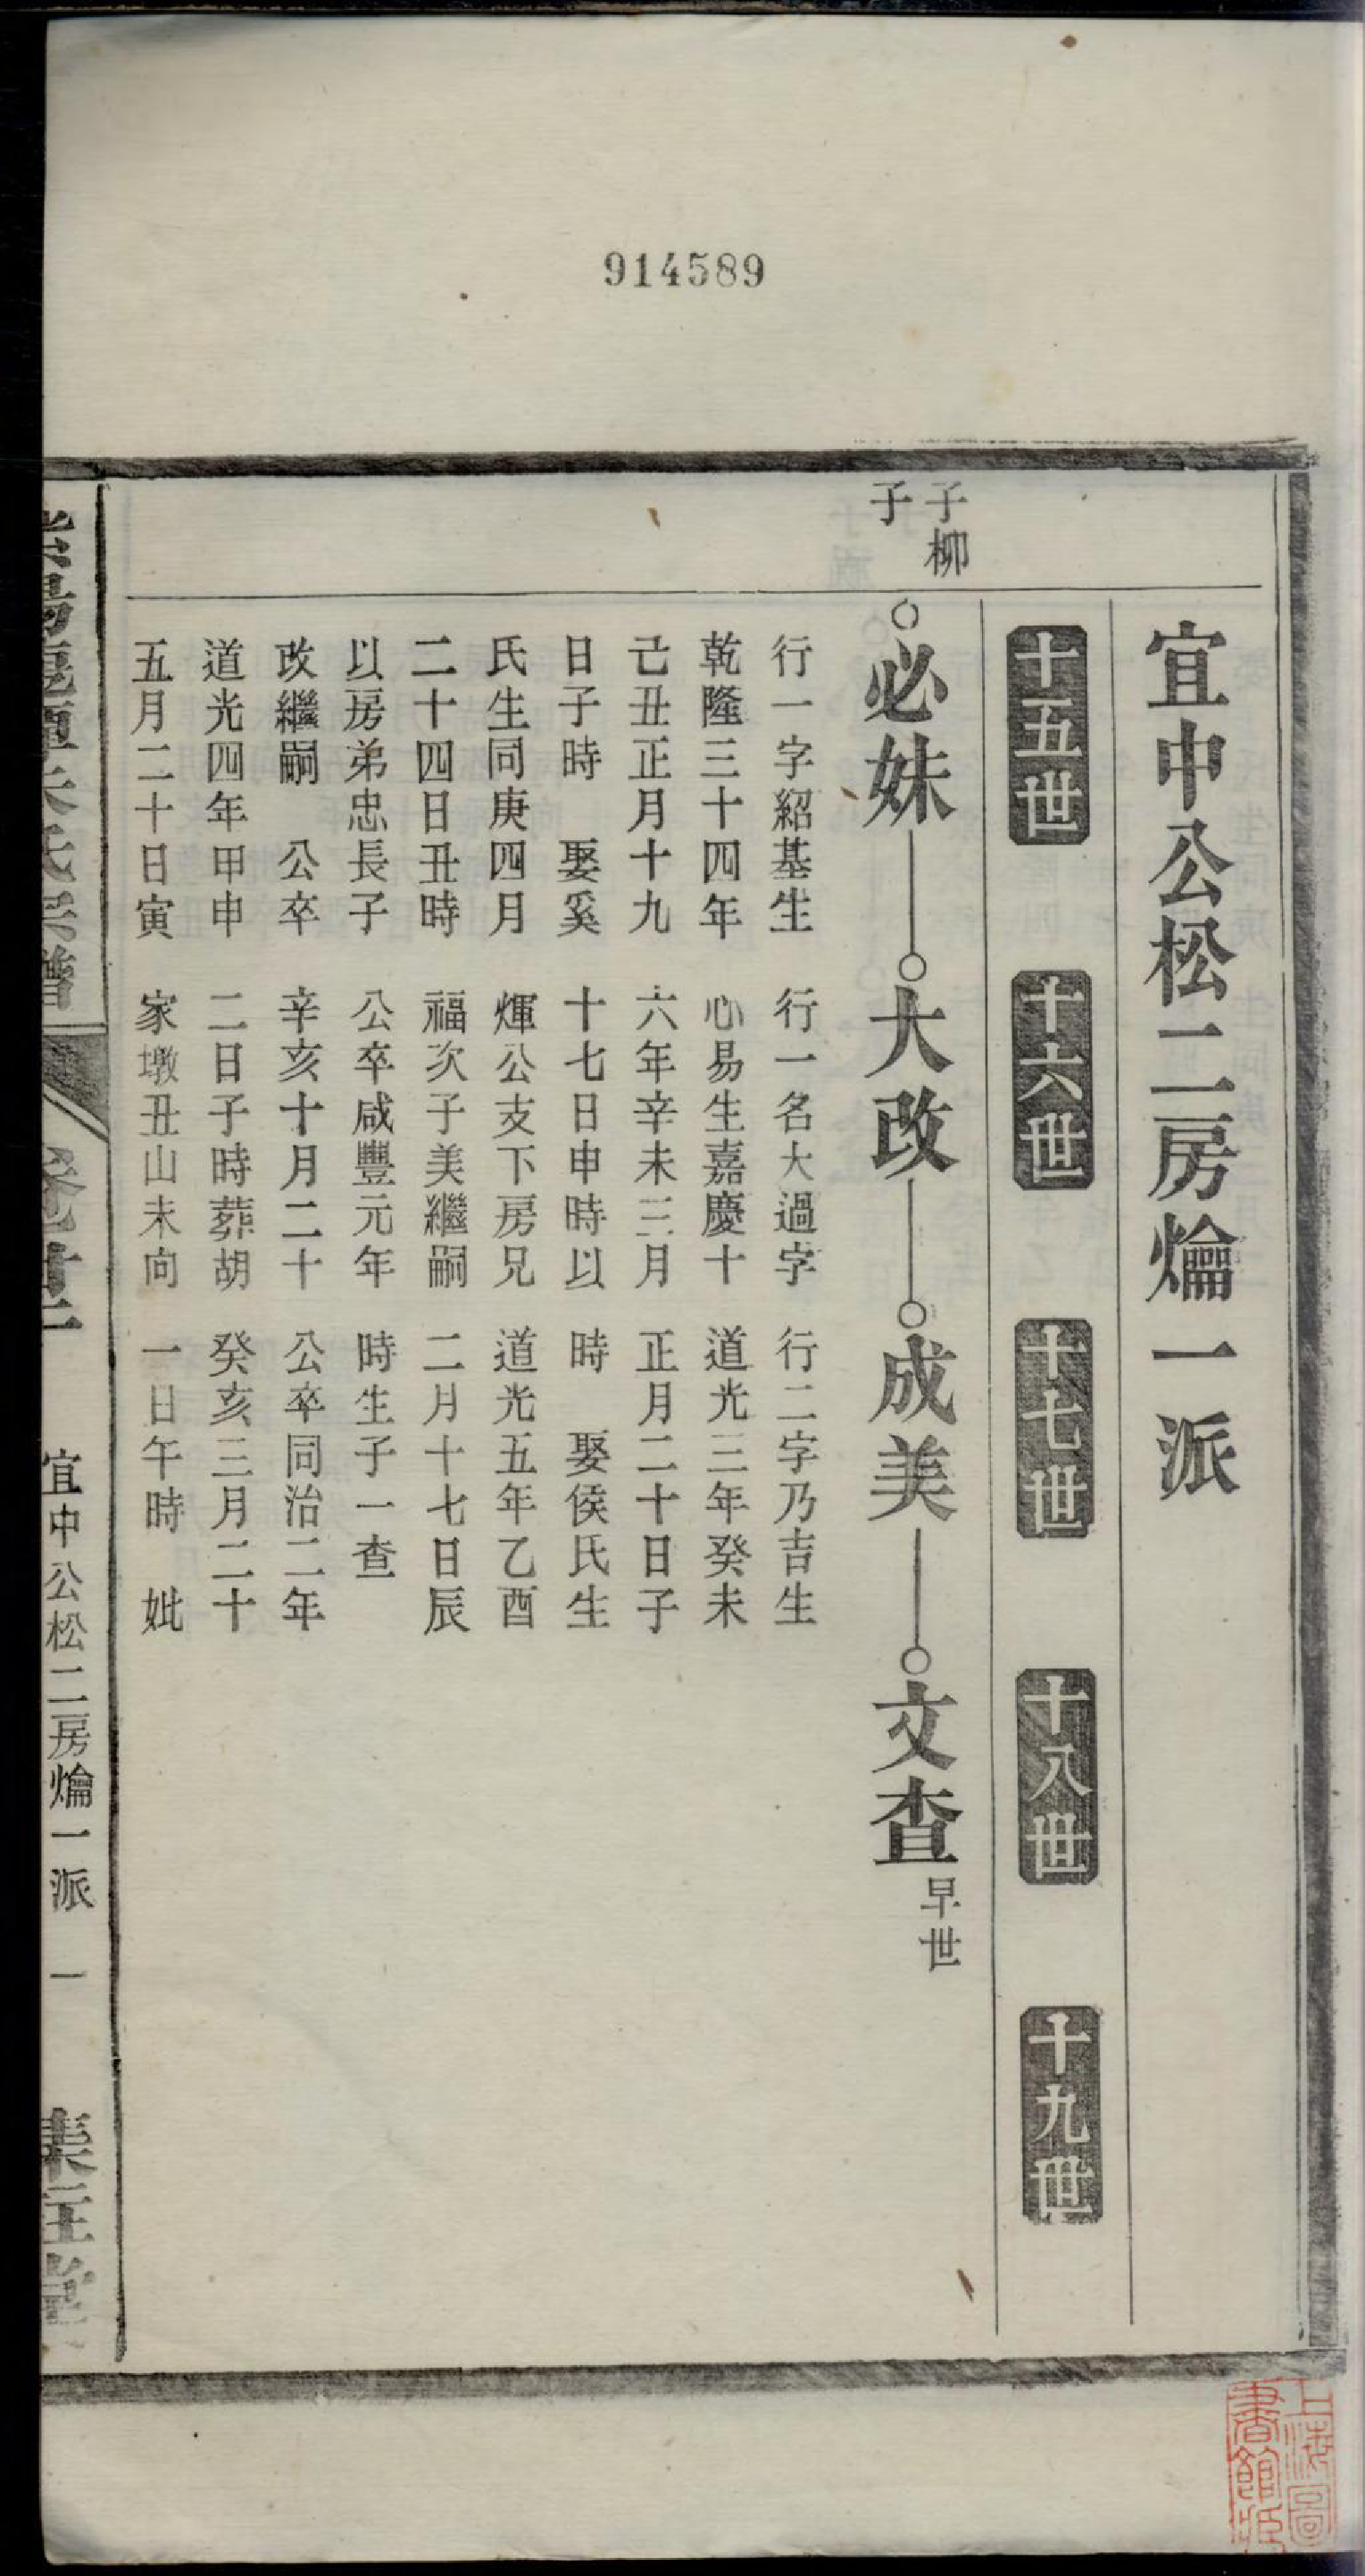 914589
宜中公松二房爚一派
十五世
十六世
十七世
十八世
十九世
子柳
子
必妹
大改
成美
文查早世
行一字紹基生
乾隆三十四年
己丑正月十九
日子時 娶奚
氏生同庚四月
二十四日丑時
以房弟忠長子
改繼嗣 公卒
道光四年甲申
五月二十日寅
行一名大過字
心易生嘉慶十
六年辛未三月
十七日申時以
煇公支下房兄
福次子美繼嗣
公卒咸豐元年
辛亥十月二十
二日子時葬胡
家墩丑山未向
行二字乃吉生
道光三年癸未
正月二十日子
時 娶侯氏生
道光五年乙酉
二月十七日辰
時生子一查
公卒同治二年
癸亥三月二十
一日午時 妣
宜中公松二房爚一派 一
上海圖
書館